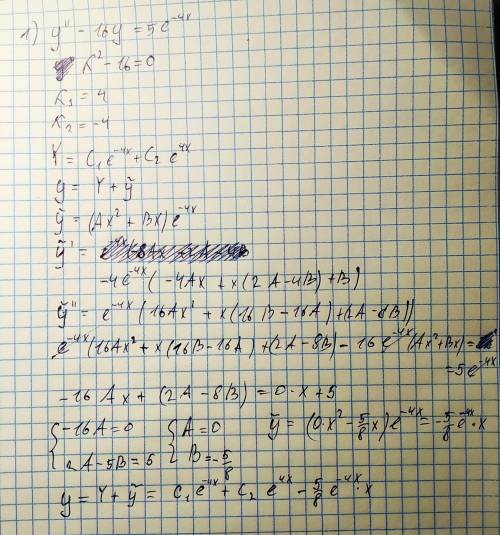 1) y'' - 16y = 5e^{-4x}
K² - 16 = 0
K₁ = 4
K₂ = -4
Y = C₁e^{-4x} + C₂ e^{4x}
y = Y + ỹ
ỹ = (Ax² + Bx)e^{-4x}
ỹ' =
-4e^{-4x}(-4Ax + x(2A-4B)+B)
ỹ'' = e^{-4x}(16Ax² + x(16B-16A)+(2A-8B))
e^{-4x}(16Ax² + x(16B-16A)+(2A-8B) - 16e^{-4x}(Ax²+Bx) =
= 5e^{-4x}
-16Ax + (2A-8B) = 0·x + 5
{ -16A = 0 { A = 0 ỹ = (0·x² - 5/8x)e^{-4x} = -5/8 e^{-4x}·x
{ 2A-5B = 5 { B = -5/8
y = Y + ỹ = C₁e^{-4x} + C₂ e^{4x} - 5/8 e^{-4x}·x